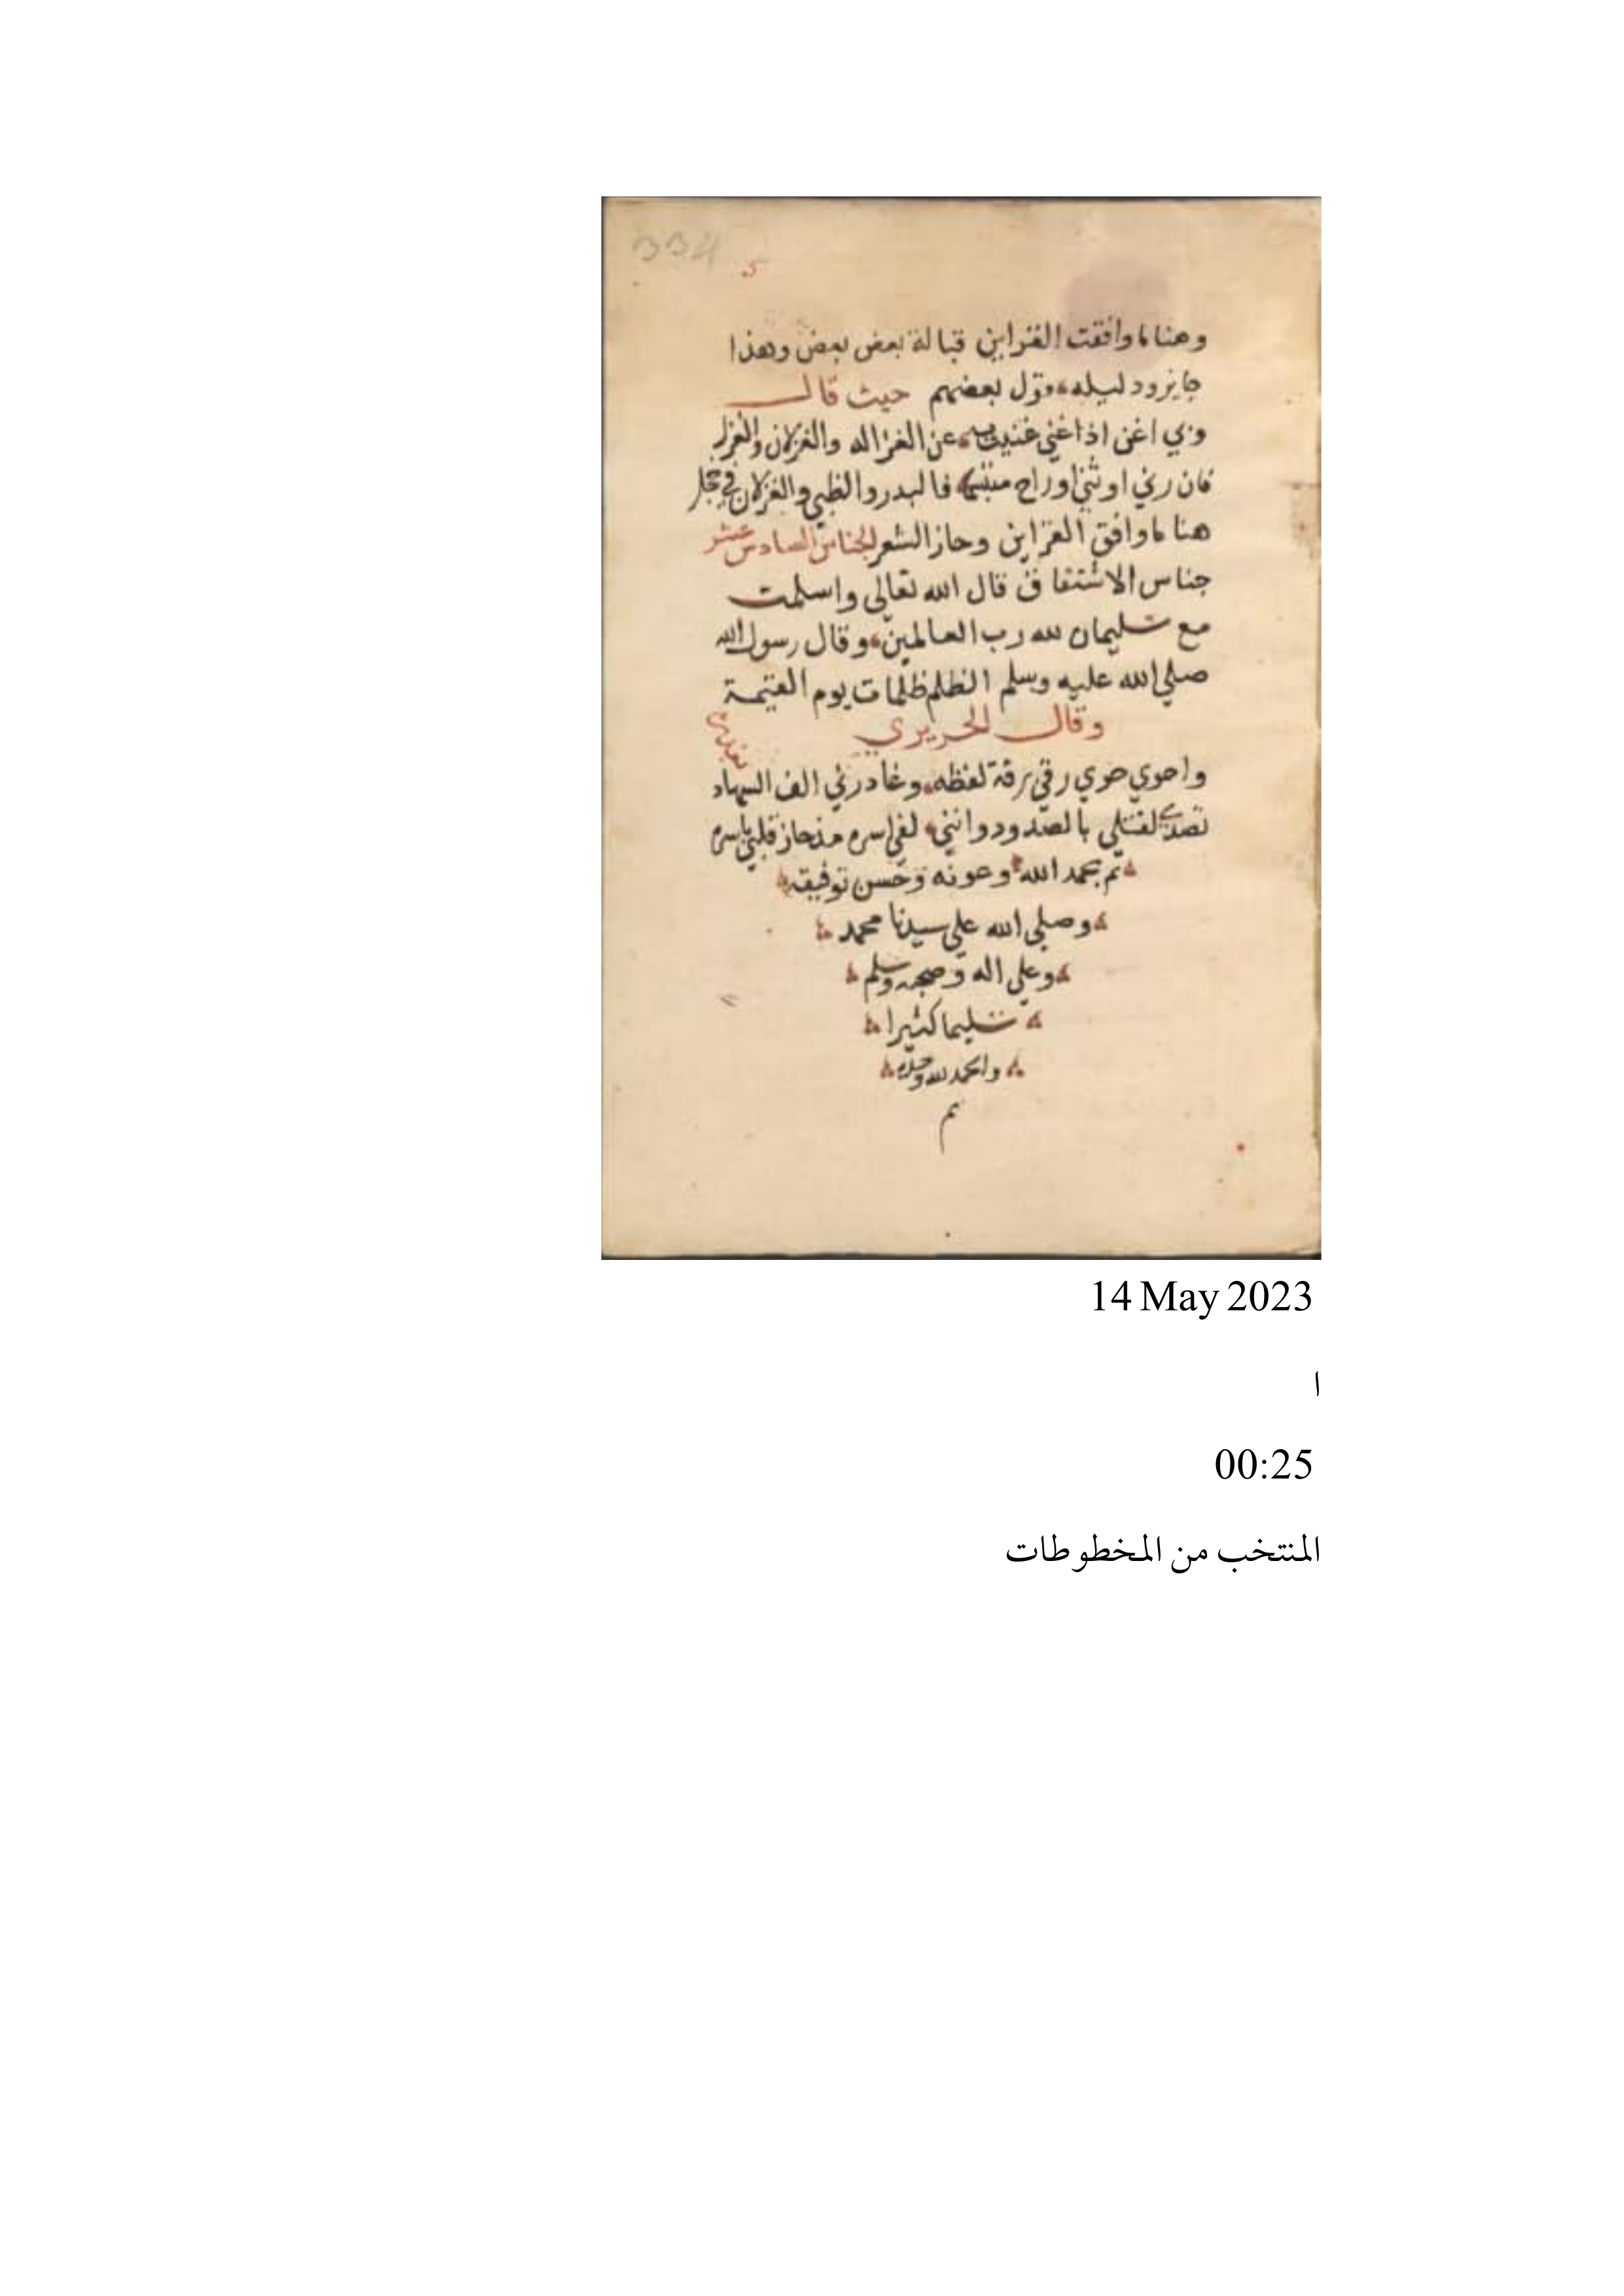 334
وهنا ما وافقت القراين قبالة بعض بعض وهذا
جايز ودليله وقول بعضهم حيث قال
وبي اغن اذا غني غنيت به عن الغزاله والغزلان والغزل
فان رني او ثني او راح مبتسما فالبدر والظبي والغزلان في خجل
هنا ما وافق القراين وحاز الشعر الجناس السادس عشر
جناس الاشتقاق قال الله تعالى واسلمت
مع سليمان لله رب العالمين وقال رسول الله
صلي الله عليه وسلم الظلم ظلمات يوم القيمة
وقال الحريري
واحوي حوي رقي برقة لفظه وغادرني الف السهاد
تصدي لقتلي بالصدود وانني لفي اسره مذ حاز قلبي باسره
تم بحمد الله وعونه وحسن توفيقه
وصلي الله علي سيدنا محمد
وعلي اله وصحبه وسلم
تسليما كثيرا
والحمد لله وحده
تم
14 May 2023
ا
00:25
المنتخب من المخطوطات